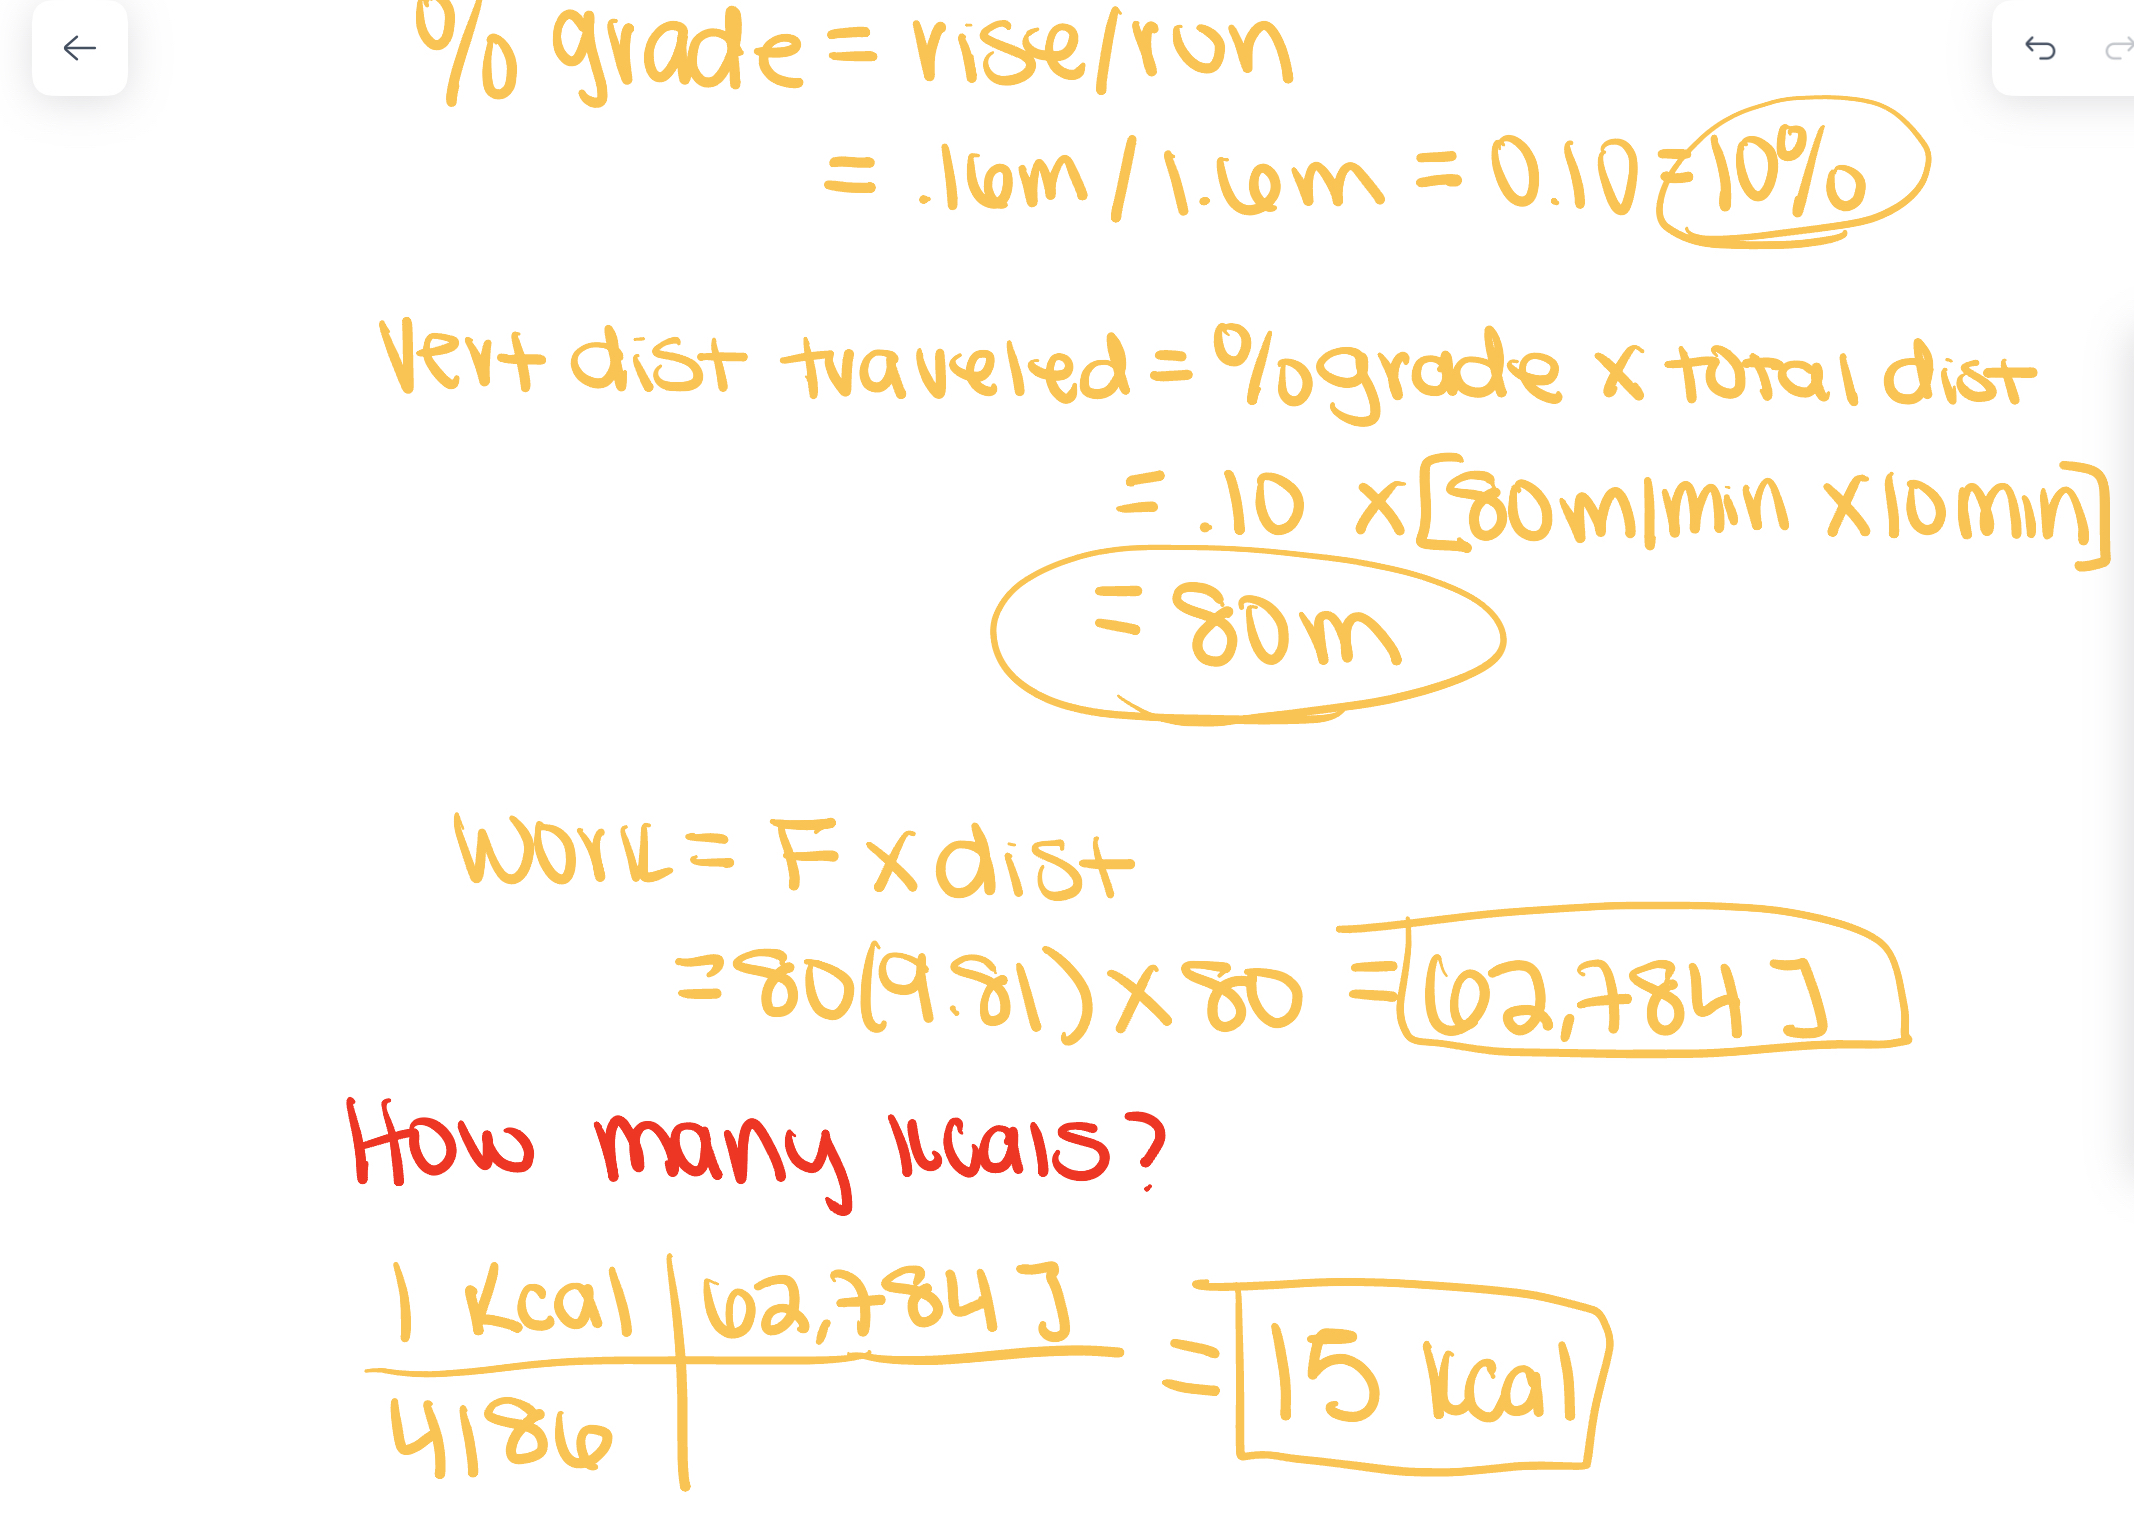 % grade = rise/run
= .16m / 1.6m = 0.10 = 10%
Vert dist traveled = % grade x total dist
= .10 x [80m/min x 10min]
= 80m
Work = F x dist
= 80(9.81) x 80 = 62,784 J
How many kcals?
1 kcal | 62,784 J
4186
= 15 kcal